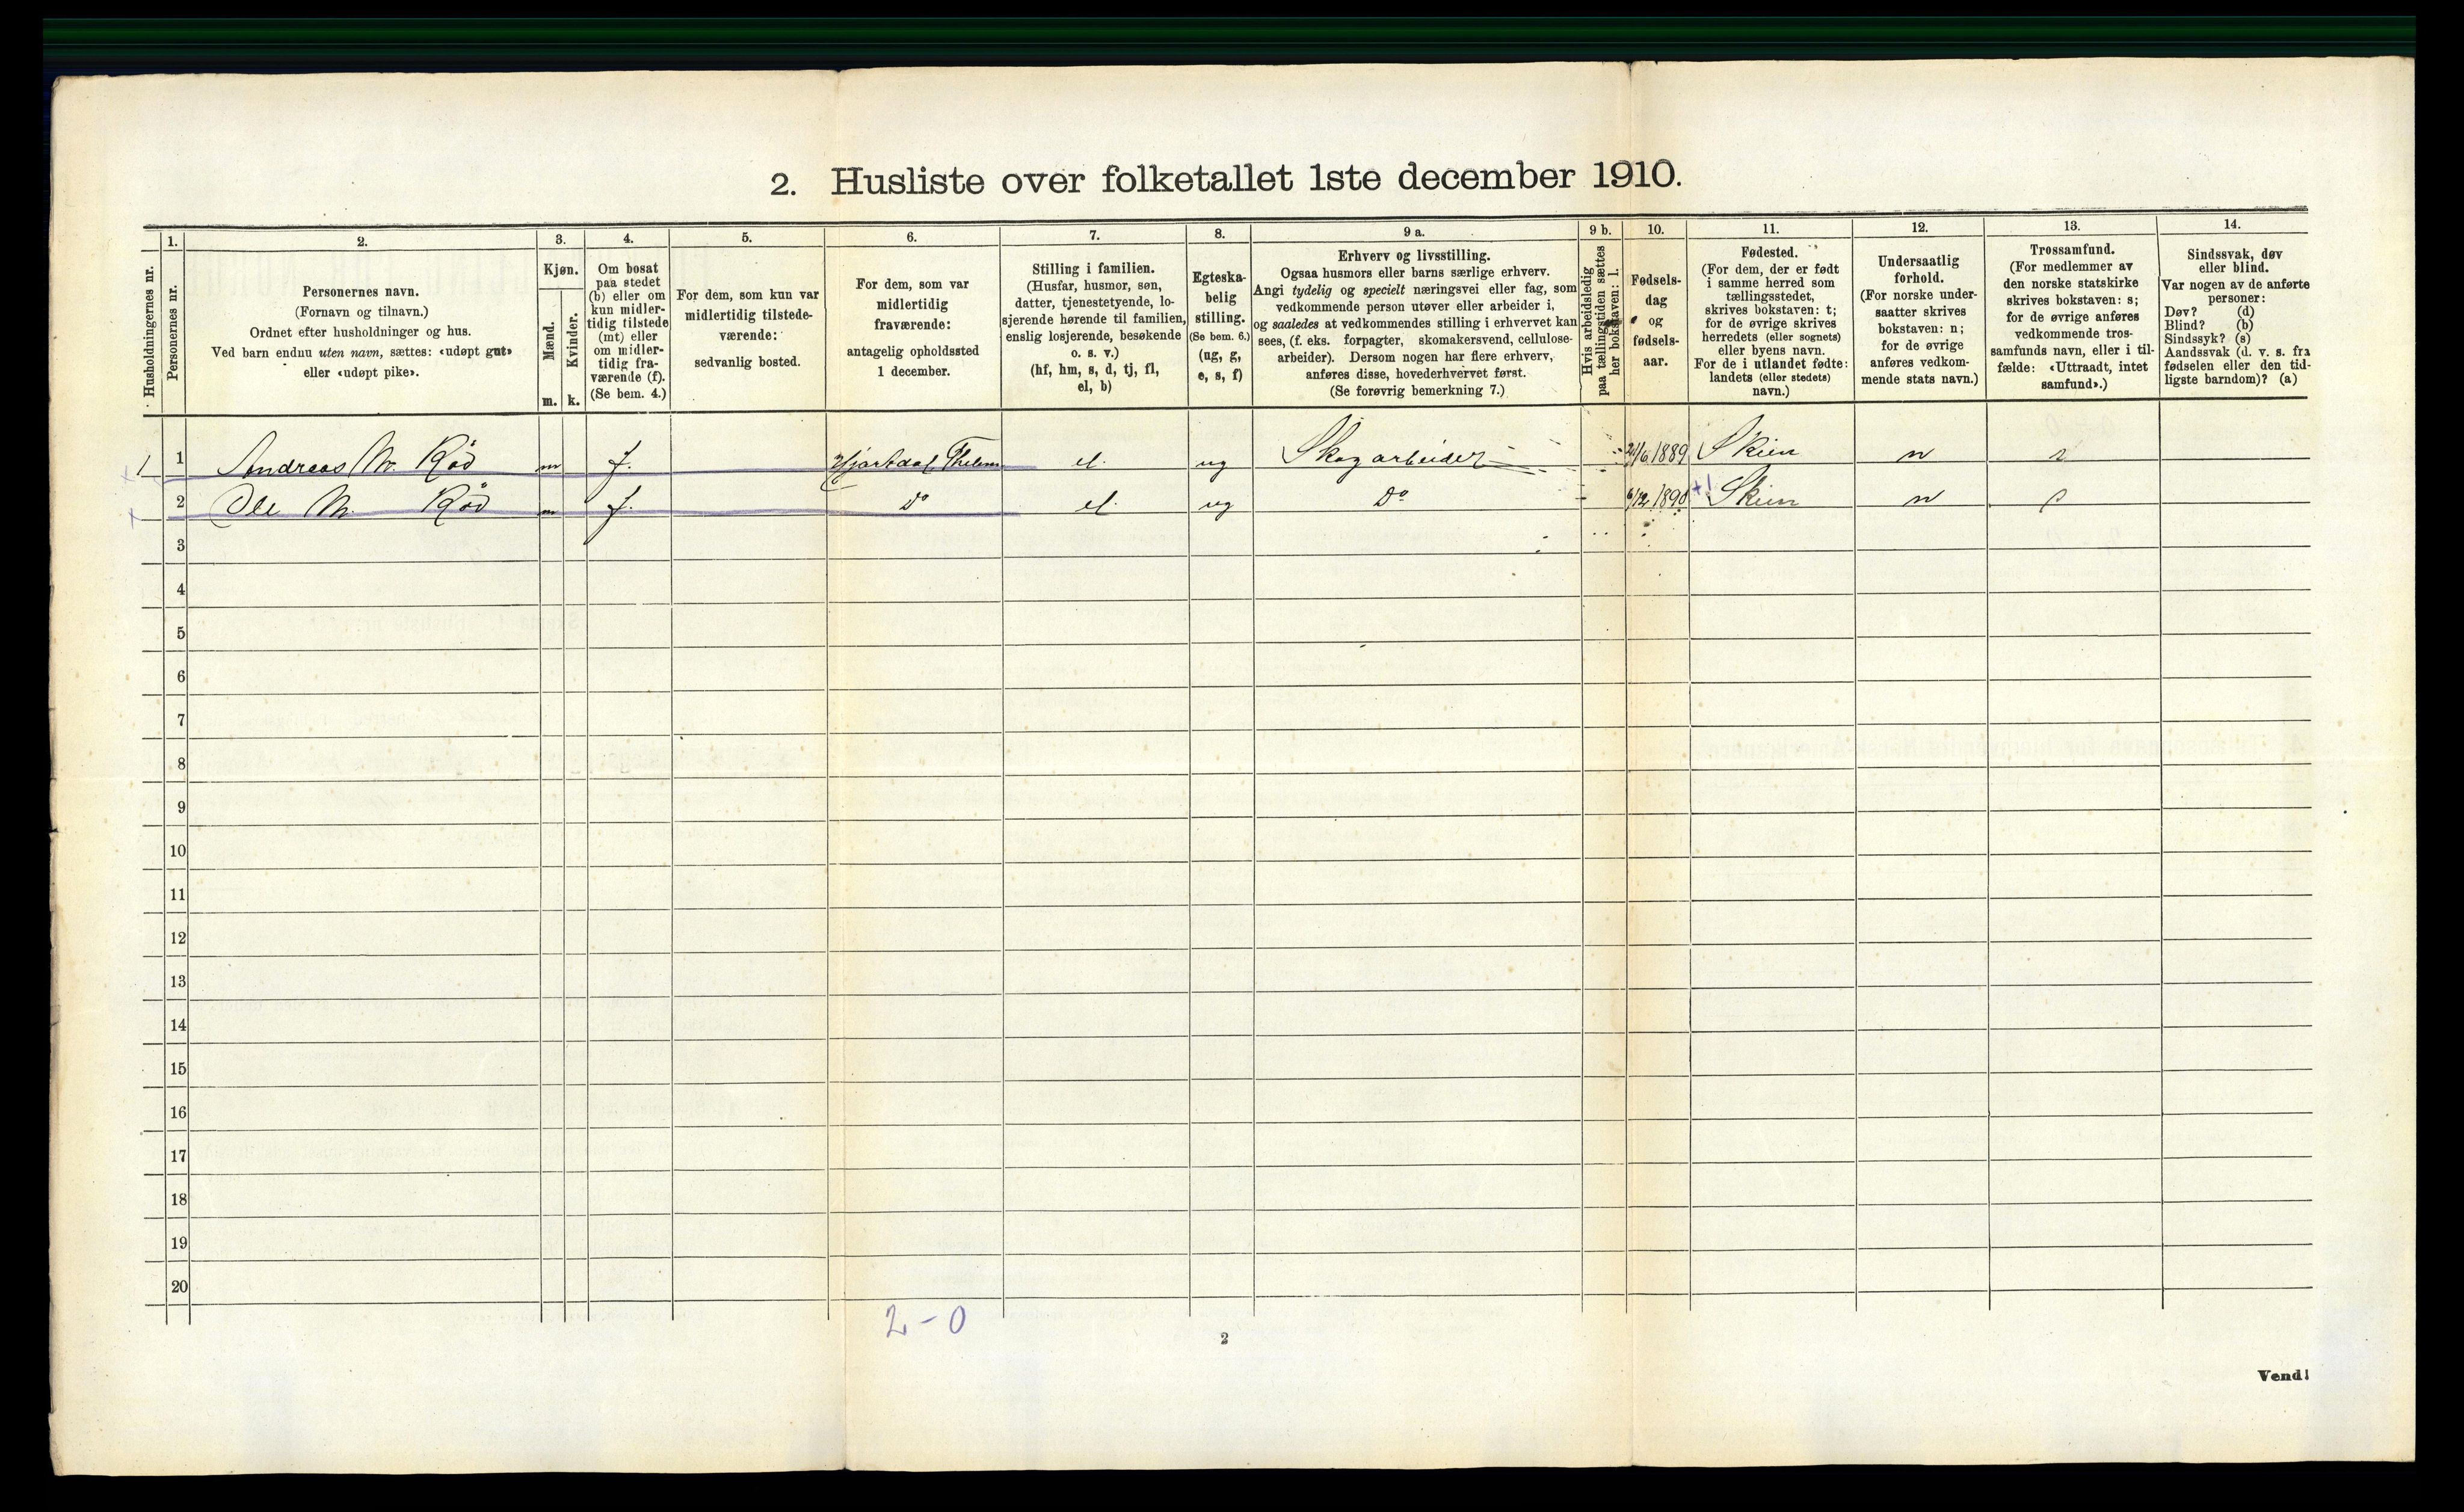 2. Husliste over folketallet 1ste december 1910.
Husholdningernes nr.
1.
Personernes nr.
2.
Personernes navn.
(Fornavn og tilnavn.)
Ordnet efter husholdninger og hus.
Ved barn endnu uten navn, sættes: «udøpt gut»
eller «udøpt pike».
3.
Kjøn.
Mænd.
Kvinder.
m. k.
4.
Om bosat
paa stedet
(b) eller om
kun midler-
tidig tilstede
(mt) eller
om midler-
tidig fra-
værende (f).
(Se bem. 4.)
5.
For dem, som kun var
midlertidig tilstede-
værende:
sedvanlig bosted.
6.
For dem, som var
midlertidig
fraværende:
antagelig opholdssted
1 december.
7.
Stilling i familien.
(Husfar, husmor, søn,
datter, tjenestetyende, lo-
sjerende hørende til familien,
enslig losjerende, besøkende
o. s. v.)
(hf, hm, s, d, tj, fl,
el, b)
8.
Egteska-
belig
stilling.
(Se bem. 6.)
(ug, g,
e, s, f)
9 a.
Erhverv og livsstilling.
Ogsaa husmors eller barns særlige erhverv.
Angi tydelig og specielt næringsvei eller fag, som
vedkommende person utøver eller arbeider i,
og saaledes at vedkommendes stilling i erhvervet kan
sees, (f. eks. forpagter, skomakersvend, cellulose-
arbeider). Dersom nogen har flere erhverv,
anføres disse, hovederhvervet først.
(Se forøvrig bemerkning 7.)
9 b.
Hvis arbeidsledig
paa tællingstiden sættes
her bokstaven: l.
10.
Fødsels-
dag
og
fødsels-
aar.
11.
Fødested.
(For dem, der er født
i samme herred som
tællingsstedet,
skrives bokstaven: t;
for de øvrige skrives
herredets (eller sognets)
eller byens navn.
For de i utlandet fødte:
landets (eller stedets)
navn.)
12.
Undersaatlig
forhold.
(For norske under-
saatter skrives
bokstaven: n;
for de øvrige
anføres vedkom-
mende stats navn.)
13.
Trossamfund.
(For medlemmer av
den norske statskirke
skrives bokstaven: s;
for de øvrige anføres
vedkommende tros-
samfunds navn, eller i til-
fælde: «Uttraadt, intet
samfund».)
14.
Sindssvak, døv
eller blind.
Var nogen av de anførte
personer:
Døv? (d)
Blind? (b)
Sindssyk? (s)
Aandssvak (d. v. s. fra
fødselen eller den tid-
ligste barndom)? (a)
1 1 Andreas M. Röd m f. Hjartdal Thelem el. ug Skogarbeider 1889 Skien n s
2 Ole M. Röd m f. Do el. ug Do 6/12 1890 Skien n s
3
4
5
6
7
8
9
10
11
12
13
14
15
16
17
18
19
20
2-0
2
Vend!